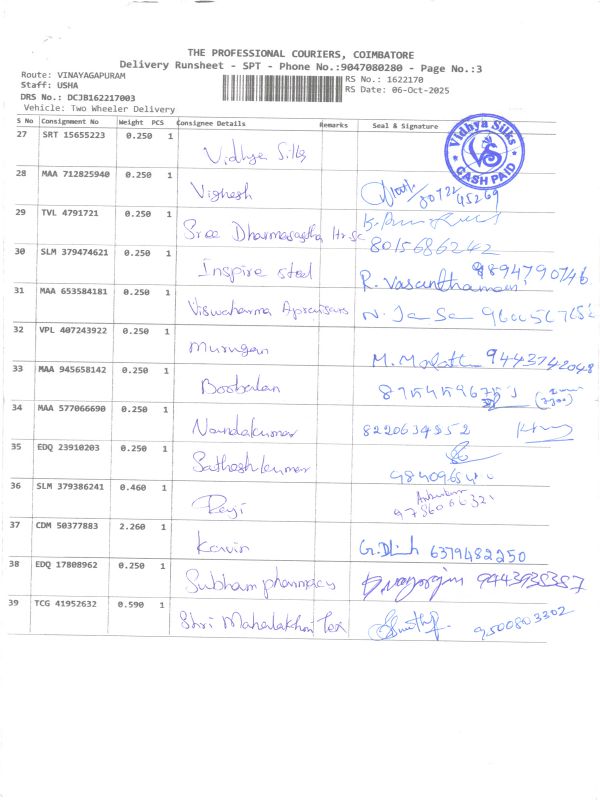 THE PROFESSIONAL COURIERS, COIMBATORE
Delivery Runsheet - SPT - Phone No.:9047080280 - Page No.:3
Route: VINAYAGAPURAM RS No.: 1622170
Staff: USHA RS Date: 06-Oct-2025
DRS No.: DCJB162217003
Vehicle: Two Wheeler Delivery
S No Consignment No Weight PCS Consignee Details Remarks Seal & Signature
27 SRT 15655223 0.250 1 Vidhya Silks Vidhya Silks VS CASH PAID
28 MAA 712825940 0.250 1 Vighesh
29 TVL 4791721 0.250 1 Sree Dharmasastha Hr.Sc 8015686242
30 SLM 379474621 0.250 1 Inspire steel R. Vasanthamani 9894790746
31 MAA 653584181 0.250 1 Viswakarma Apraisars
32 VPL 407243922 0.250 1 Murugan 9443742048
33 MAA 945658142 0.250 1 Boobalan
34 MAA 577066690 0.250 1 Nandakumar 8220634952
35 EDQ 23910203 0.250 1 Satheshkumar
36 SLM 379386241 0.460 1
37 CDM 50377883 2.260 1 Kavin 6379482250
38 EDQ 17808962 0.250 1 Subham pharmacy
39 TCG 41952632 0.590 1 Shri Mahalakhmi Tex 9500803302